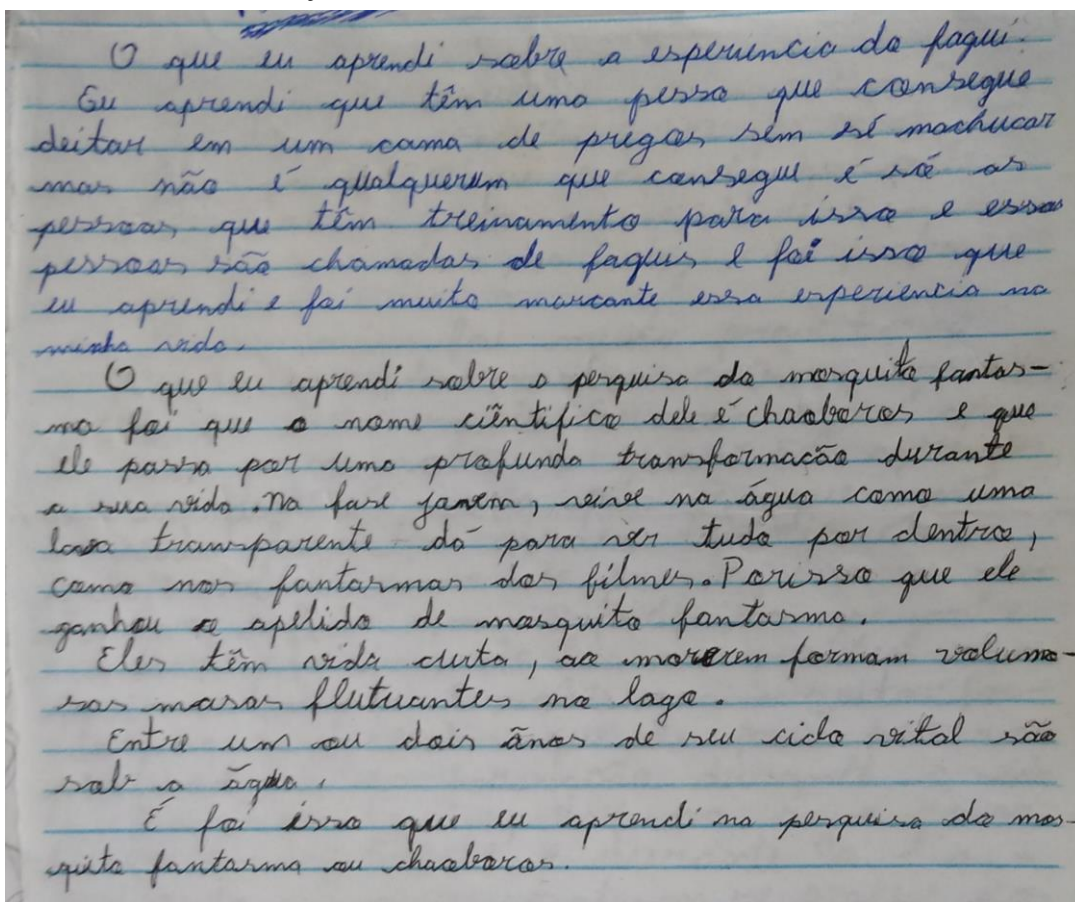 O que eu aprendi sobre a esperiencia do faqui.
Eu aprendi que têm uma pessoa que consegue
deitar em um cama de pregos sem sé machucar
mas não é qualquerum que consegue é só as
pessoas que têm treinamento para isso e essas
pessoas são chamadas de faquis e foi isso que
eu aprendi e foi muito marcante essa experiencia na
minha vida.
O que eu aprendi sobre a pesquisa do mosquito fantas-
ma foi que o nome ciêntifico dele é chaoboros e que
ele passa por uma profunda transformacão durante
a sua vida. Na fase jovem, veive na água como uma
lava transparente dá para ver tudo por dentro,
como nos fantasmas dos filmes. Porisso que ele
ganhou o apelido de mosquito fantasma.
Eles têm vida curta, ao morerem formam volumo-
sas masas flutuantes no lago.
Entre um ou dois ãnos de seu ciclo vital são
sob a ãgua.
É foi isso que eu aprendi na pesquisa do mos-
quito fantasma ou chaoboros.